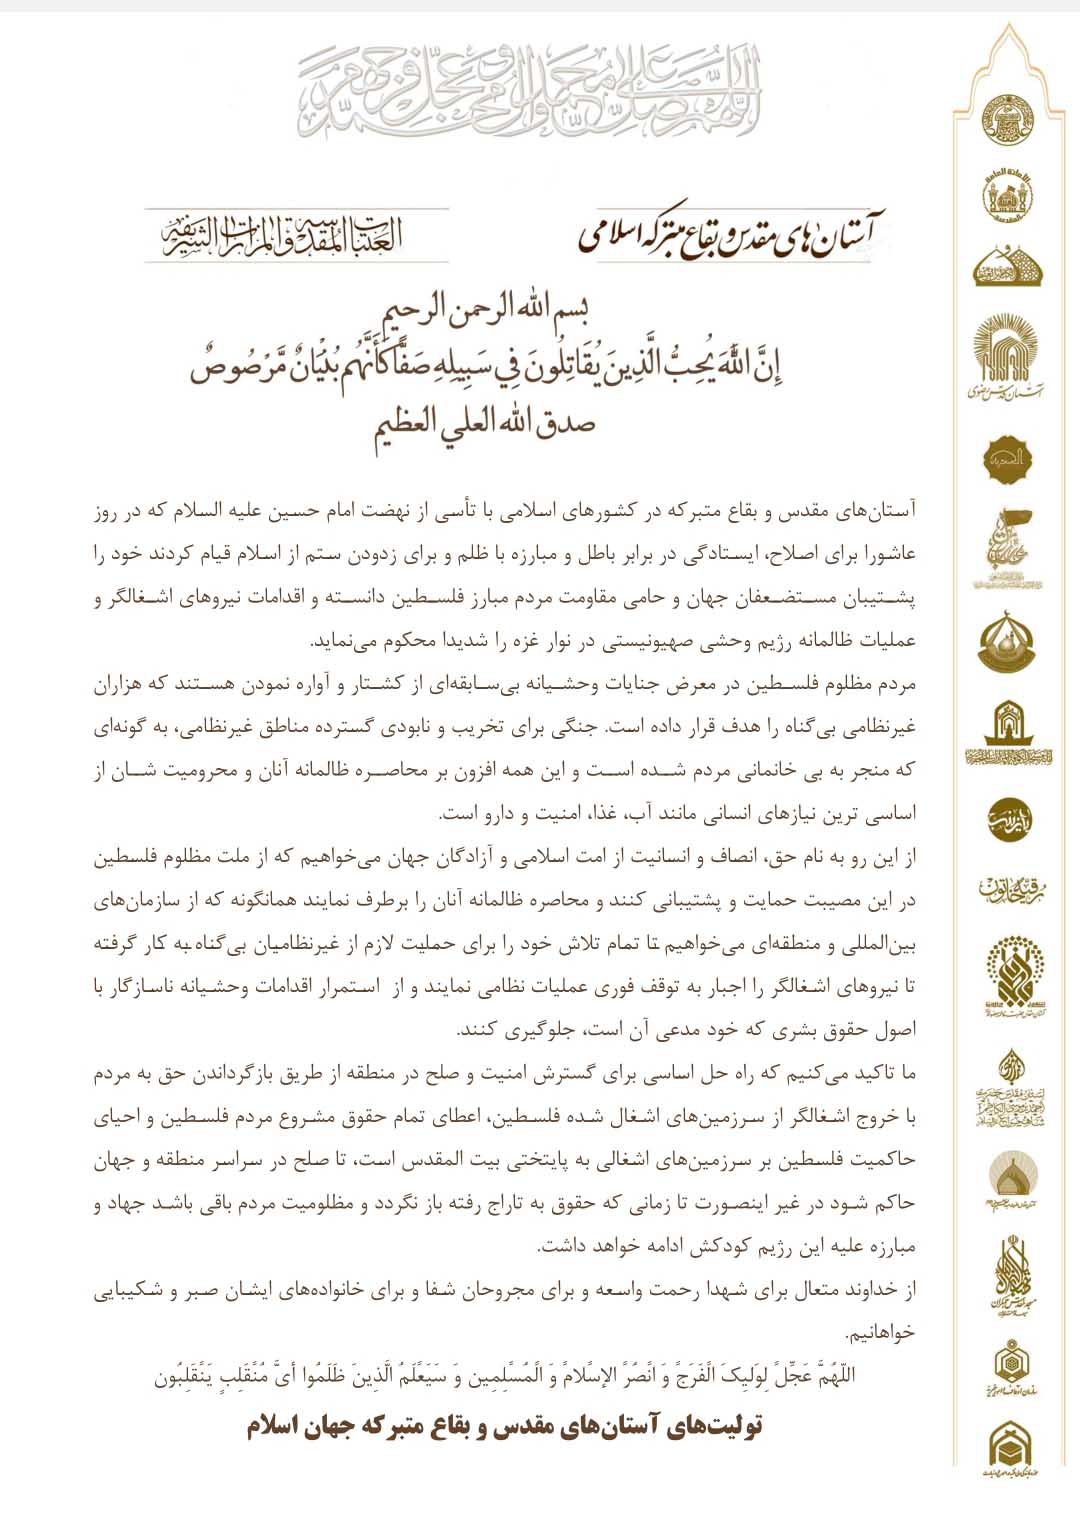 اللهم صل على محمد وآل محمد وعجل فرجهم
آستان‌های مقدس و بقاع متبرکه اسلامی
العتبات المقدسة والمزارات الشريفة
بسم الله الرحمن الرحیم
إِنَّ اللَّهَ يُحِبُّ الَّذِينَ يُقَاتِلُونَ فِي سَبِيلِهِ صَفًّا كَأَنَّهُم بُنْيَانٌ مَّرْصُوصٌ
صدق الله العلي العظيم
آستان‌های مقدس و بقاع متبرکه در کشورهای اسلامی با تأسی از نهضت امام حسین علیه السلام که در روز
عاشورا برای اصلاح، ایستادگی در برابر باطل و مبارزه با ظلم و برای زدودن ستم از اسلام قیام کردند خود را
پشتیبان مستضعفان جهان و حامی مقاومت مردم مبارز فلسطین دانسته و اقدامات نیروهای اشغالگر و
عملیات ظالمانه رژیم وحشی صهیونیستی در نوار غزه را شدیدا محکوم می‌نماید.
مردم مظلوم فلسطین در معرض جنایات وحشیانه بی‌سابقه‌ای از کشتار و آواره نمودن هستند که هزاران
غیرنظامی بی‌گناه را هدف قرار داده است. جنگی برای تخریب و نابودی گسترده مناطق غیرنظامی، به گونه‌ای
که منجر به بی خانمانی مردم شده است و این همه افزون بر محاصره ظالمانه آنان و محرومیت شان از
اساسی ترین نیازهای انسانی مانند آب، غذا، امنیت و دارو است.
از این رو به نام حق، انصاف و انسانیت از امت اسلامی و آزادگان جهان می‌خواهیم که از ملت مظلوم فلسطین
در این مصیبت حمایت و پشتیبانی کنند و محاصره ظالمانه آنان را برطرف نمایند همانگونه که از سازمان‌های
بین‌المللی و منطقه‌ای می‌خواهیم تا تمام تلاش خود را برای حمایت لازم از غیرنظامیان بی‌گناه به کار گرفته
تا نیروهای اشغالگر را اجبار به توقف فوری عملیات نظامی نمایند و از استمرار اقدامات وحشیانه ناسازگار با
اصول حقوق بشری که خود مدعی آن است، جلوگیری کنند.
ما تاکید می‌کنیم که راه حل اساسی برای گسترش امنیت و صلح در منطقه از طریق بازگرداندن حق به مردم
با خروج اشغالگر از سرزمین‌های اشغال شده فلسطین، اعطای تمام حقوق مشروع مردم فلسطین و احیای
حاکمیت فلسطین بر سرزمین‌های اشغالی به پایتختی بیت المقدس است، تا صلح در سراسر منطقه و جهان
حاکم شود در غیر اینصورت تا زمانی که حقوق به تاراج رفته باز نگردد و مظلومیت مردم باقی باشد جهاد و
مبارزه علیه این رژیم کودکش ادامه خواهد داشت.
از خداوند متعال برای شهدا رحمت واسعه و برای مجروحان شفا و برای خانواده‌های ایشان صبر و شکیبایی
خواهانیم.
اللّهُمَّ عَجِّلْ لِوَلیِکَ الْفَرَجْ وَ انْصُرْ الإسْلامْ وَ الْمُسْلِمِین وَ سَیَعْلَمُ الَّذِینَ ظَلَمُوا أیَّ مُنْقَلِبٍ یَنْقَلِبُون
تولیت‌های آستان‌های مقدس و بقاع متبرکه جهان اسلام
آستان قدس رضوی